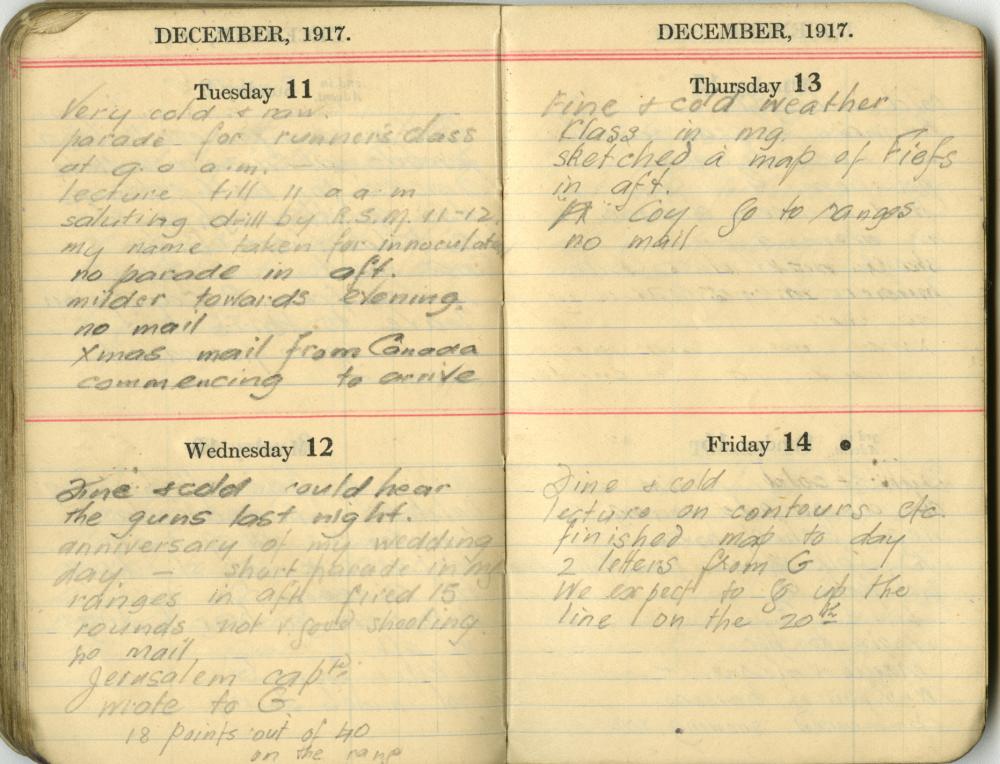 DECEMBER, 1917.
Tuesday 11
Very cold & raw.
parade for runner's class
at 9.0 a.m.
lecture till 11 o a m
saluting drill by R.S.M. 11-12
my name taken for innoculat
no parade in aft.
milder towards evening.
no mail
Xmas mail from Canada
commencing to arrive
Wednesday 12
Fine & cold could hear
the guns last night.
anniversary of my wedding
day. — short parade in
ranges in aft fired 15
rounds not v good shooting.
no mail
Jerusalem capt'd
wrote to G
18 points out of 40
on the range
DECEMBER, 1917.
Thursday 13
Fine & cold weather
Class in mg.
sketched a map of Fiefs
in aft.
"A" Coy go to ranges
no mail
Friday 14
Fine & cold
lecture on contours etc.
finished map to day
2 letters from G
We expect to go up the
line on the 20th